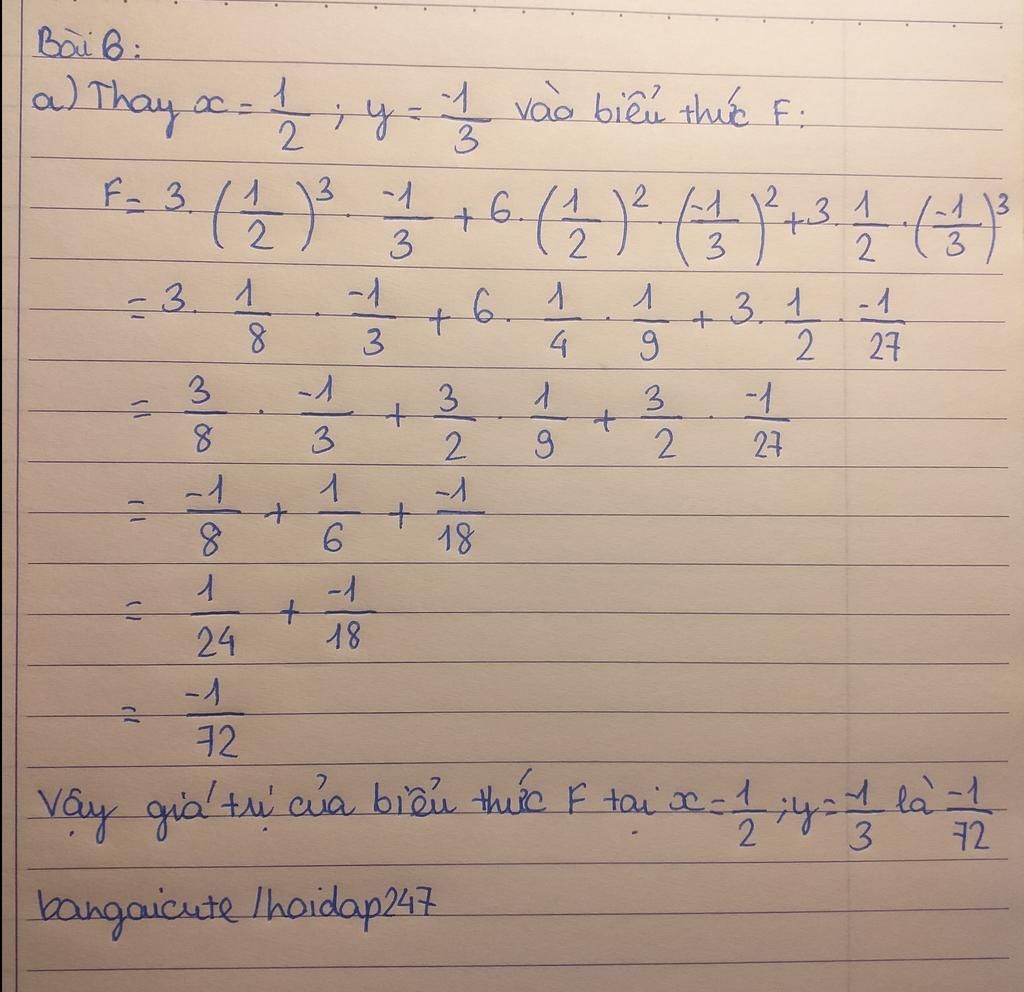 Bài 6:
a) Thay x = 1/2 ; y = -1/3 vào biểu thức F:
F = 3. (1/2)³ . -1/3 + 6. (1/2)² . (-1/3)² + 3. 1/2 . (-1/3)³
= 3. 1/8 . -1/3 + 6. 1/4 . 1/9 + 3. 1/2 . -1/27
= 3/8 . -1/3 + 3/2 . 1/9 + 3/2 . -1/27
= -1/8 + 1/6 + -1/18
= 1/24 + -1/18
= -1/72
Vậy giá trị của biểu thức F tại x = 1/2 ; y = -1/3 là -1/72
bangaicute /hoidap247